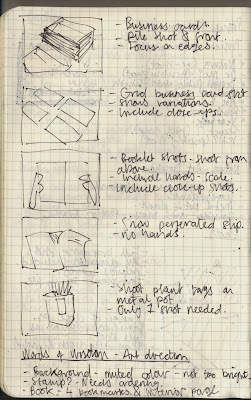 - Business cards.
- Pile shot & front.
- Focus on edges.
- Grid business card shot
- shows variations.
- Include close-ups.
- Booklet shots - shot from
above.
- Include hands - scale.
- Include close-up shots.
- Show perforated slip.
- no hands.
- Shoot plant tags on
metal pot.
- Only 1 shot needed.
Words of Wisdom - Art direction
- Background - muted colour - not too bright.
- Stamp? - Needs ordering.
- Book - 4 bookmarks & interior page